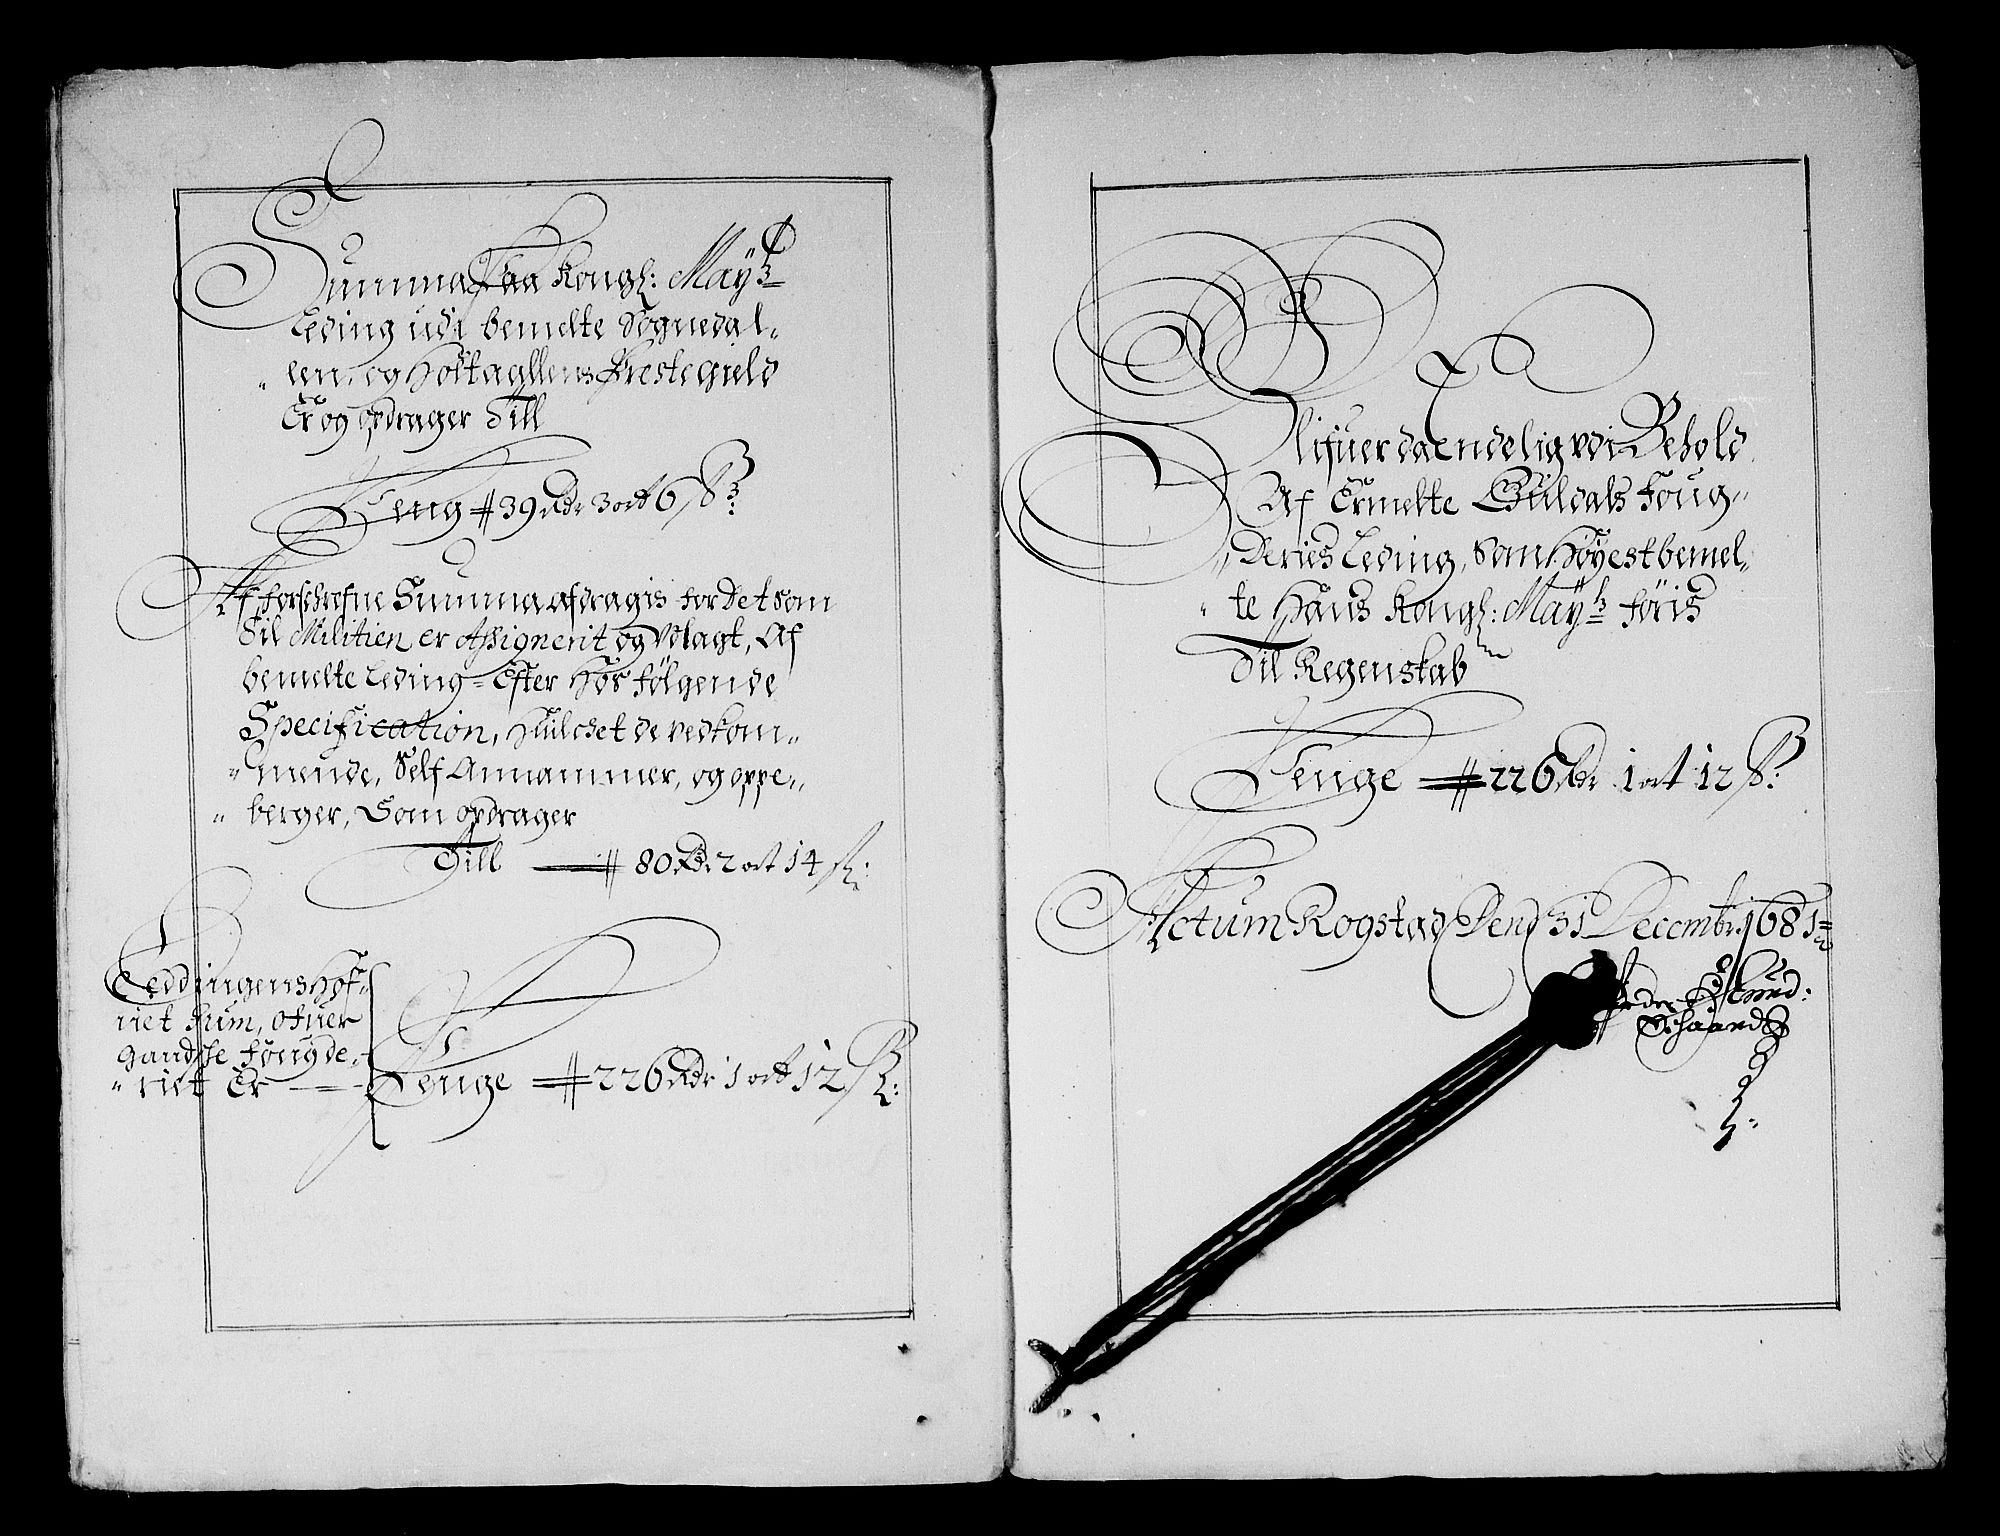 Summa Paa Kongl: Mayts
Leding udi bemelte Sognedal„
„ len, og Holtagllens Prestegield
Er og opdrager Till
Peng # 39 Rdr 3 ort 6 ß:
Af forschrefne Summa afdragis for Det Som
Til Militien er Assignerit og Udlagt, Af
bemelte Leding = Efter Hos følgende
Specification, Huilchet de vedkom„
„ mende, Self Annammer, og oppe„
„ berger, Som opdrager
Till # 80 Rdr 2 ort 14 ß:
Leddingens Hof„
riet Sum, ofuer
gandsche fougde„
„ riet Er Penge # 226 Rdr 1 ort 12 ß:
Blifuer da Endelig vdi Behold
Af Ermelte Guldals foug„
„ deries Leding, Som Høyestbemel„
„ te Hans Kongl: Mayts føris
Til Regenskab
Penge # 226 Rdr 1 ort 12 ß:
Actum Rogstad Dend 31 Decembr: 1681